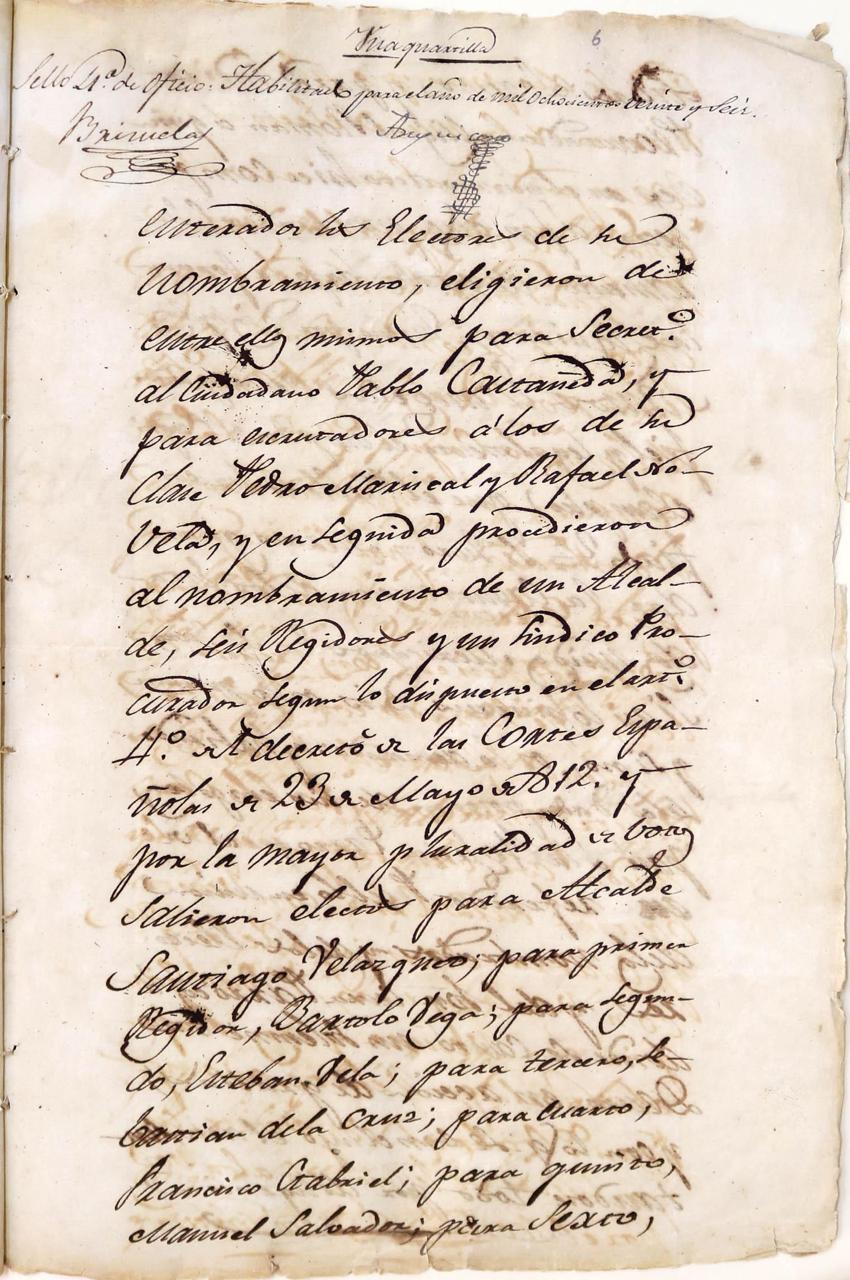 Una quartilla
6
Sello 4.º de Oficio: Habilitado para el año de mil Ochocientos veinte y Seis.
Brizuela
enterados los Electores de su
nombramiento, eligieron de
entre ellos mismos para Secret.º
al Ciudadano Pablo Castañeda, y
para escrutadores á los de su
Clase Pedro Mariscal y Rafael No-
vela, y en seguida procedieron
al nombramiento de un Alcal-
de, seis Regidores y un Sindico Pro-
curador segun lo dispuesto en el art.º
4.º del decreto de las Cortes Espa-
ñolas de 23 de Mayo de 812. y
por la mayor pluralidad de votos
Salieron electos para Alcalde
Santiago Velazques; para primer
Regidor, Bartolo Vega; para segun-
do, Esteban Vela; para tercero, Se-
bastian de la Cruz; para cuarto,
Francisco Gabriel; para quinto,
Manuel Salvador; para Sexto,